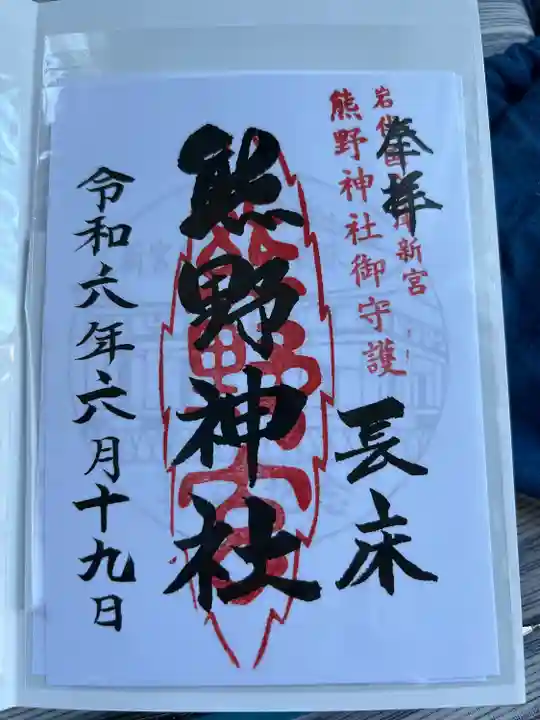 奉拝
岩代國
新宮
熊野神社御守護
長床
熊野神社
令和六年六月十九日